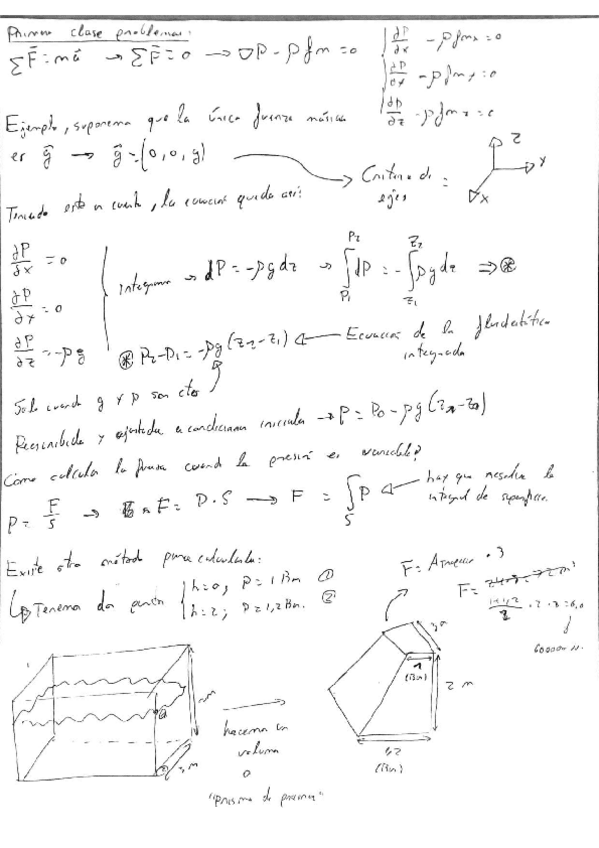 Primera clase problemas:
∑F̄ = mā → ∑F̄ = 0 → ∇P - ρfm = 0
∂P/∂x - ρfmx = 0
∂P/∂y - ρfmy = 0
∂P/∂z - ρfmz = 0
Ejemplo, suponemos que la única fuerza másica
es ḡ → ḡ = (0, 0, g)
Criterio de ejes =
Z
Y
X
Teniendo esto en cuenta, la ecuación queda así:
∂P/∂x = 0
∂P/∂y = 0
∂P/∂z = -ρg
integramos → dP = -ρg dz → ∫ P1 P2 dP = -∫ Z1 Z2 ρg dz ⇒ ⊛
⊛ P2 - P1 = -ρg(z2 - z1) ← Ecuación de la fluidostática
integrada
Solo cuando g y ρ son ctes
Reescribida y ajustada a condiciones iniciales → P = P0 - ρg(z - z0)
Como calcular la fuerza cuando la presión es variable?
P = F/S → F = P · S → F = ∫S P ← hay que resolver la
integral de superficie.
Existe otro método para calcularla:
↳ Tenemos dos puntos
h=0; P = 1 Bar. ①
h=2; P = 1,2 Bar. ②
F = Atrapecio · 3
F =
1+1,2/2 · 2 · 3 = 6,6
600000 N.
3 m
1
(Bar)
2 m
1,2
(Bar)
hacemos un
volumen
o
"prisma de presiones"